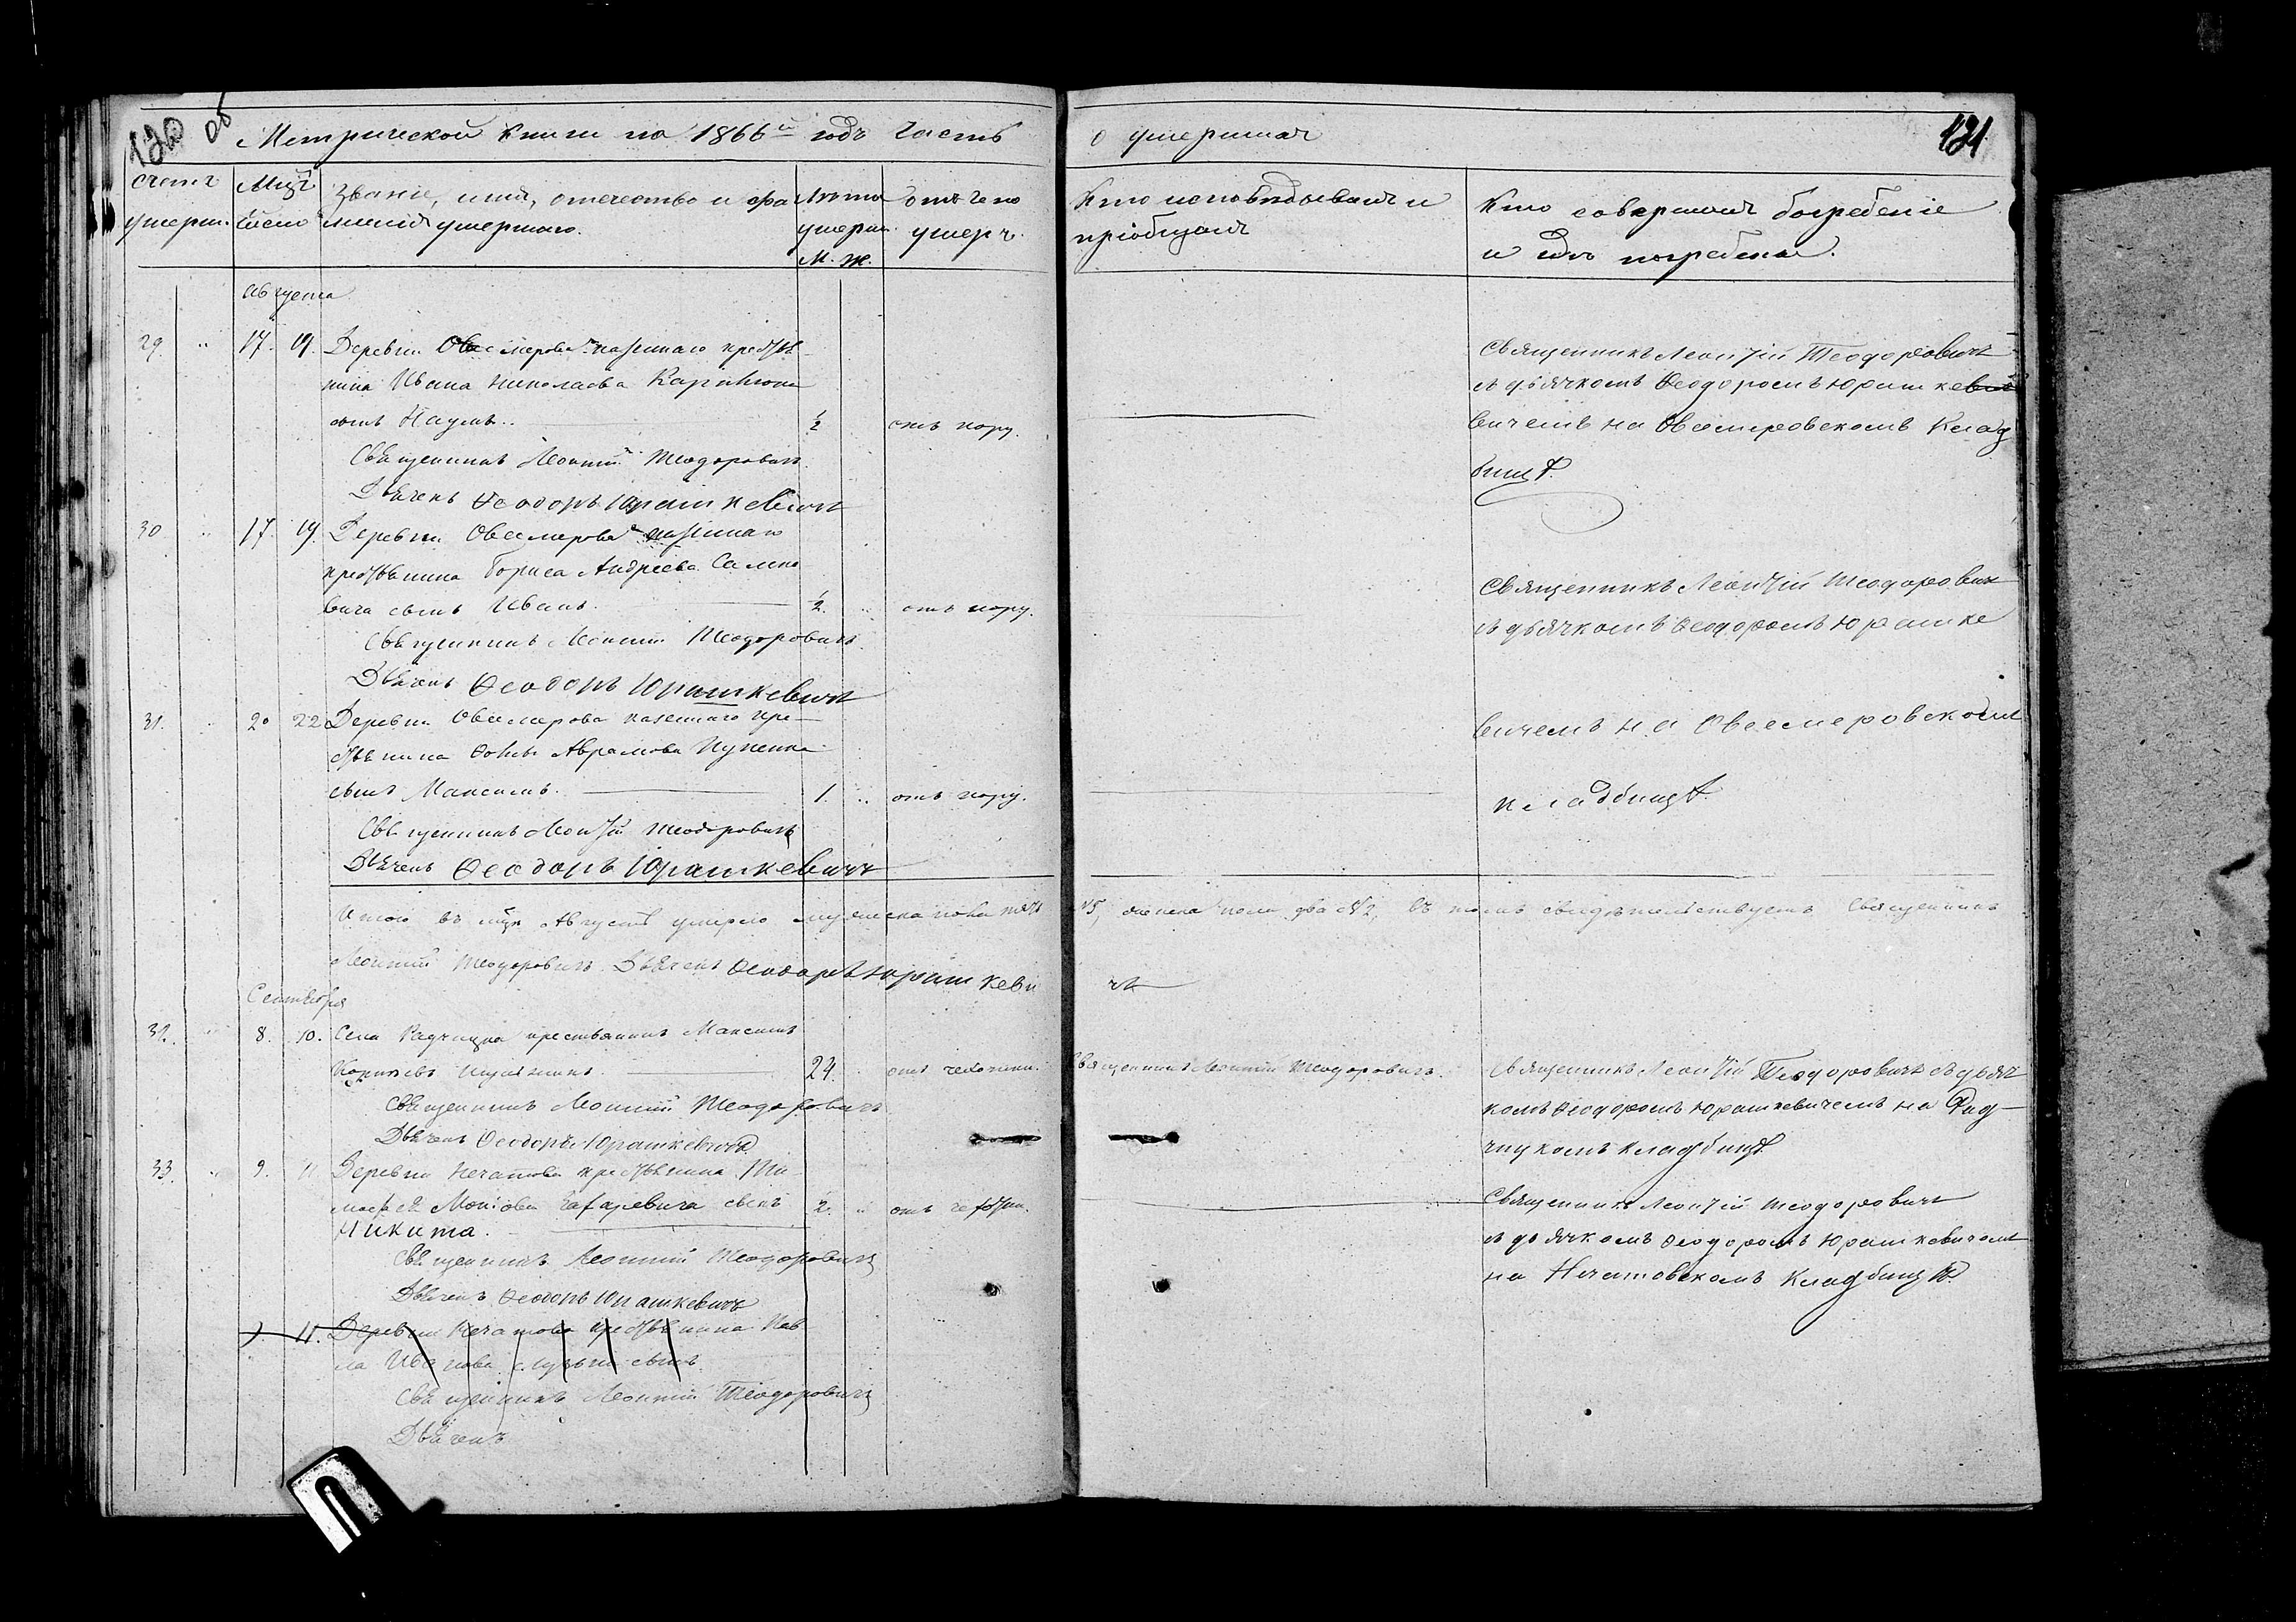 120 об
Метрической книги на 1866й годъ часть
о умершихъ
121
счетъ умерш.
Мцъ число
Званіе, имя, отечество и фамилія умершаго.
Лѣта умерш.
М. Ж.
Отъ чего умеръ.
Кто исповѣдывалъ и пріобщалъ
Кто совершалъ погребеніе
и гдѣ погребены.
Августа
29. " 17. 19. Деревни Овсемерова казеннаго крестья
нина Ивана Николаева
сынъ Наумъ. ½ отъ кору.
Священникъ Леонтій Теодоровичъ
Дьячекъ Ѳеодоръ Юрашкевичъ
Священникъ Леонтій Теодоровичъ
съ дьячкомъ Ѳеодоромъ Юрашке
вичемъ на Овсемеровскомъ Клад
бищѣ.
30 " 17. 19. Деревни Овсемерова казеннаго
крестьянина Бориса Андреева
вича сынъ Иванъ. ½. " отъ кору.
Священникъ Леонтій Теодоровичъ
Дьячекъ Ѳеодоръ Юрашкевичъ
Священникъ Леонтій Теодорович
съ дьячкомъ Ѳеодоромъ Юрашке
31. " 20 22 Деревни Овсемерова казеннаго кре-
стьянина Аврамова
сынъ Максимъ. 1. " отъ кору.
Священникъ Леонтій Теодоровичъ
Дьячекъ Ѳеодоръ Юрашкевичъ
вичемъ на Овсемеровскомъ
кладбищѣ.
Итого въ мцѣ Августѣ умерло мужеска пола пять
№5, женска пола два №2, въ томъ свидѣтельствуетъ Священникъ
Леонтій Теодоровичъ Дьячекъ Ѳеодоръ Юрашкеви
чъ
Сентября
32. " 8. 10. Села Радчицка крестьянинъ Максимъ
24. отъ
Священникъ Леонтій Теодоровичъ
Дьячекъ Ѳеодоръ Юрашкевичъ
Священникъ Леонтій Теодоровичъ.
Священникъ Леонтій Теодоровичъ съ дьяч
комъ Ѳеодоромъ Юрашкевичемъ на Рад-
чицкомъ кладбищѣ
33. " 9. 11 Деревни Нечатова крестьянина Ти
сынъ 2. " отъ
Никита.
Священникъ Леонтій Теодоровичъ
Дьячекъ Ѳеодоръ Юрашкевичъ
Священникъ Леонтій Теодоровичъ
съ дьячкомъ Ѳеодоромъ Юрашкевичемъ
на Нечатовскомъ Кладбищѣ.
9. 11. Деревни Нечатова крестьянина Пав
ла Иванова сынъ
Священникъ Леонтій Теодоровичъ
Дьячекъ